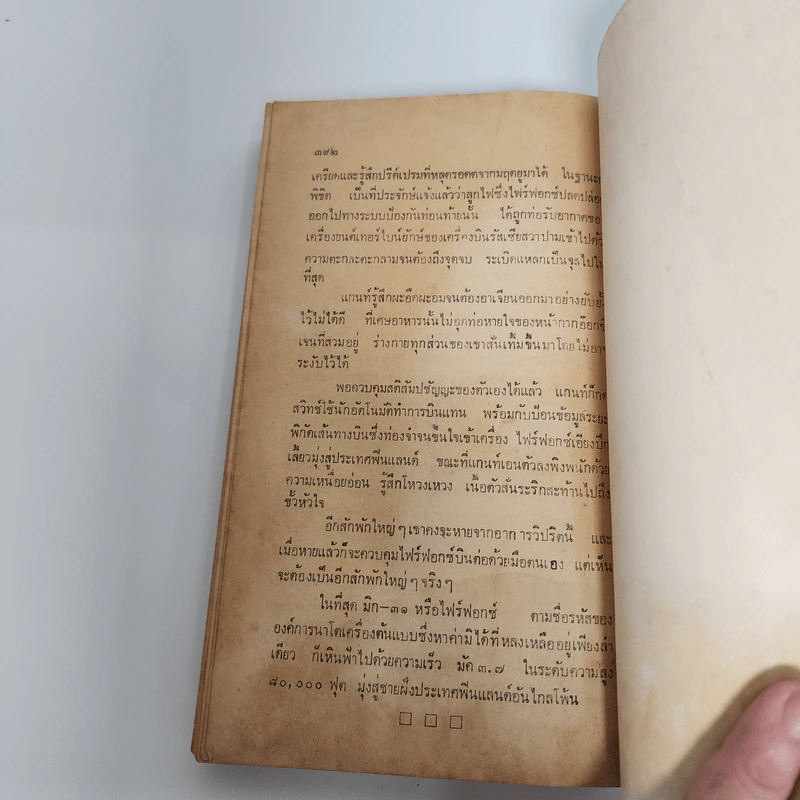 ๓๙๒
เครียดและรู้สึกปรีด์เปรมที่หลุดรอดตจากมฤตยูมาได้ ในฐานะผ
พิชิต เป็นที่ประจักษ์แจ้งแล้วว่าลูกไฟซึ่งไฟร์ฟอกซ์ปลดปล่อย
ออกไปทางระบบป้องกันท่อนท้ายนั้น ได้ถูกท่อรับอากาศของ
เครื่องยนต์เทอร์ไบน์ยักษ์ของเครื่องบินรัสเซียสวาปามเข้าไปด้ว
ความตะกละตะกลามจนต้องถึงจุดจบ ระเบิดแหลกเป็นจุลไปใน
ที่สุด
แกนท์รู้สึกผะอืดผะอมจนต้องอาเจียนออกมาอย่างยับยั้
ไว้ไม่ได้ดี ที่เศษอาหารนั้นไม่อุดท่อหายใจของหน้ากากอ๊อกซิ
เจนที่สวมอยู่ ร่างกายทุกส่วนของเขาสั่นเทิ้มขึ้นมาโดยไม่อาจ
ระงับไว้ได้
พอควบคุมสติสัมปชัญญะของตัวเองได้แล้ว แกนท์ก็กด
สวิทช์ใช้นักอัตโนมัติทำการบินแทน พร้อมกับป้อนข้อมูลระยะ
พิกัดเส้นทางบินซึ่งท่องจำจนขึ้นใจเข้าเครื่อง ไฟร์ฟอกซ์เอียงปีก
เลี้ยวมุ่งสู่ประเทศฟินแลนด์ ขณะที่แกนท์เอนตัวลงพิงพนักด้วย
ความเหนื่อยอ่อน รู้สึกโหวงเหวง เนื้อตัวสั่นระริกสะท้านไปถึง
ขั้วหัวใจ
อีกสักพักใหญ่ๆ เขาคงจะหายจากอาการวิปริตนี้ และ
เมื่อหายแล้วก็จะควบคุมไฟร์ฟอกซ์บินต่อด้วยมือตนเอง แต่เห็น
จะต้องเป็นอีกสักพักใหญ่ๆ จริงๆ
ในที่สุด มิก–๓๑ หรือไฟร์ฟอกซ์ ตามชื่อรหัสของ
องค์การนาโตเครื่องต้นแบบซึ่งหาค่ามิได้ที่หลงเหลืออยู่เพียงลำ
เดียว ก็เหินฟ้าไปด้วยความเร็ว มัค ๓.๗ ในระดับความสูง
๘๐,๐๐๐ ฟุต มุ่งสู่ชายฝั่งประเทศฟินแลนด์อันไกลโพ้น